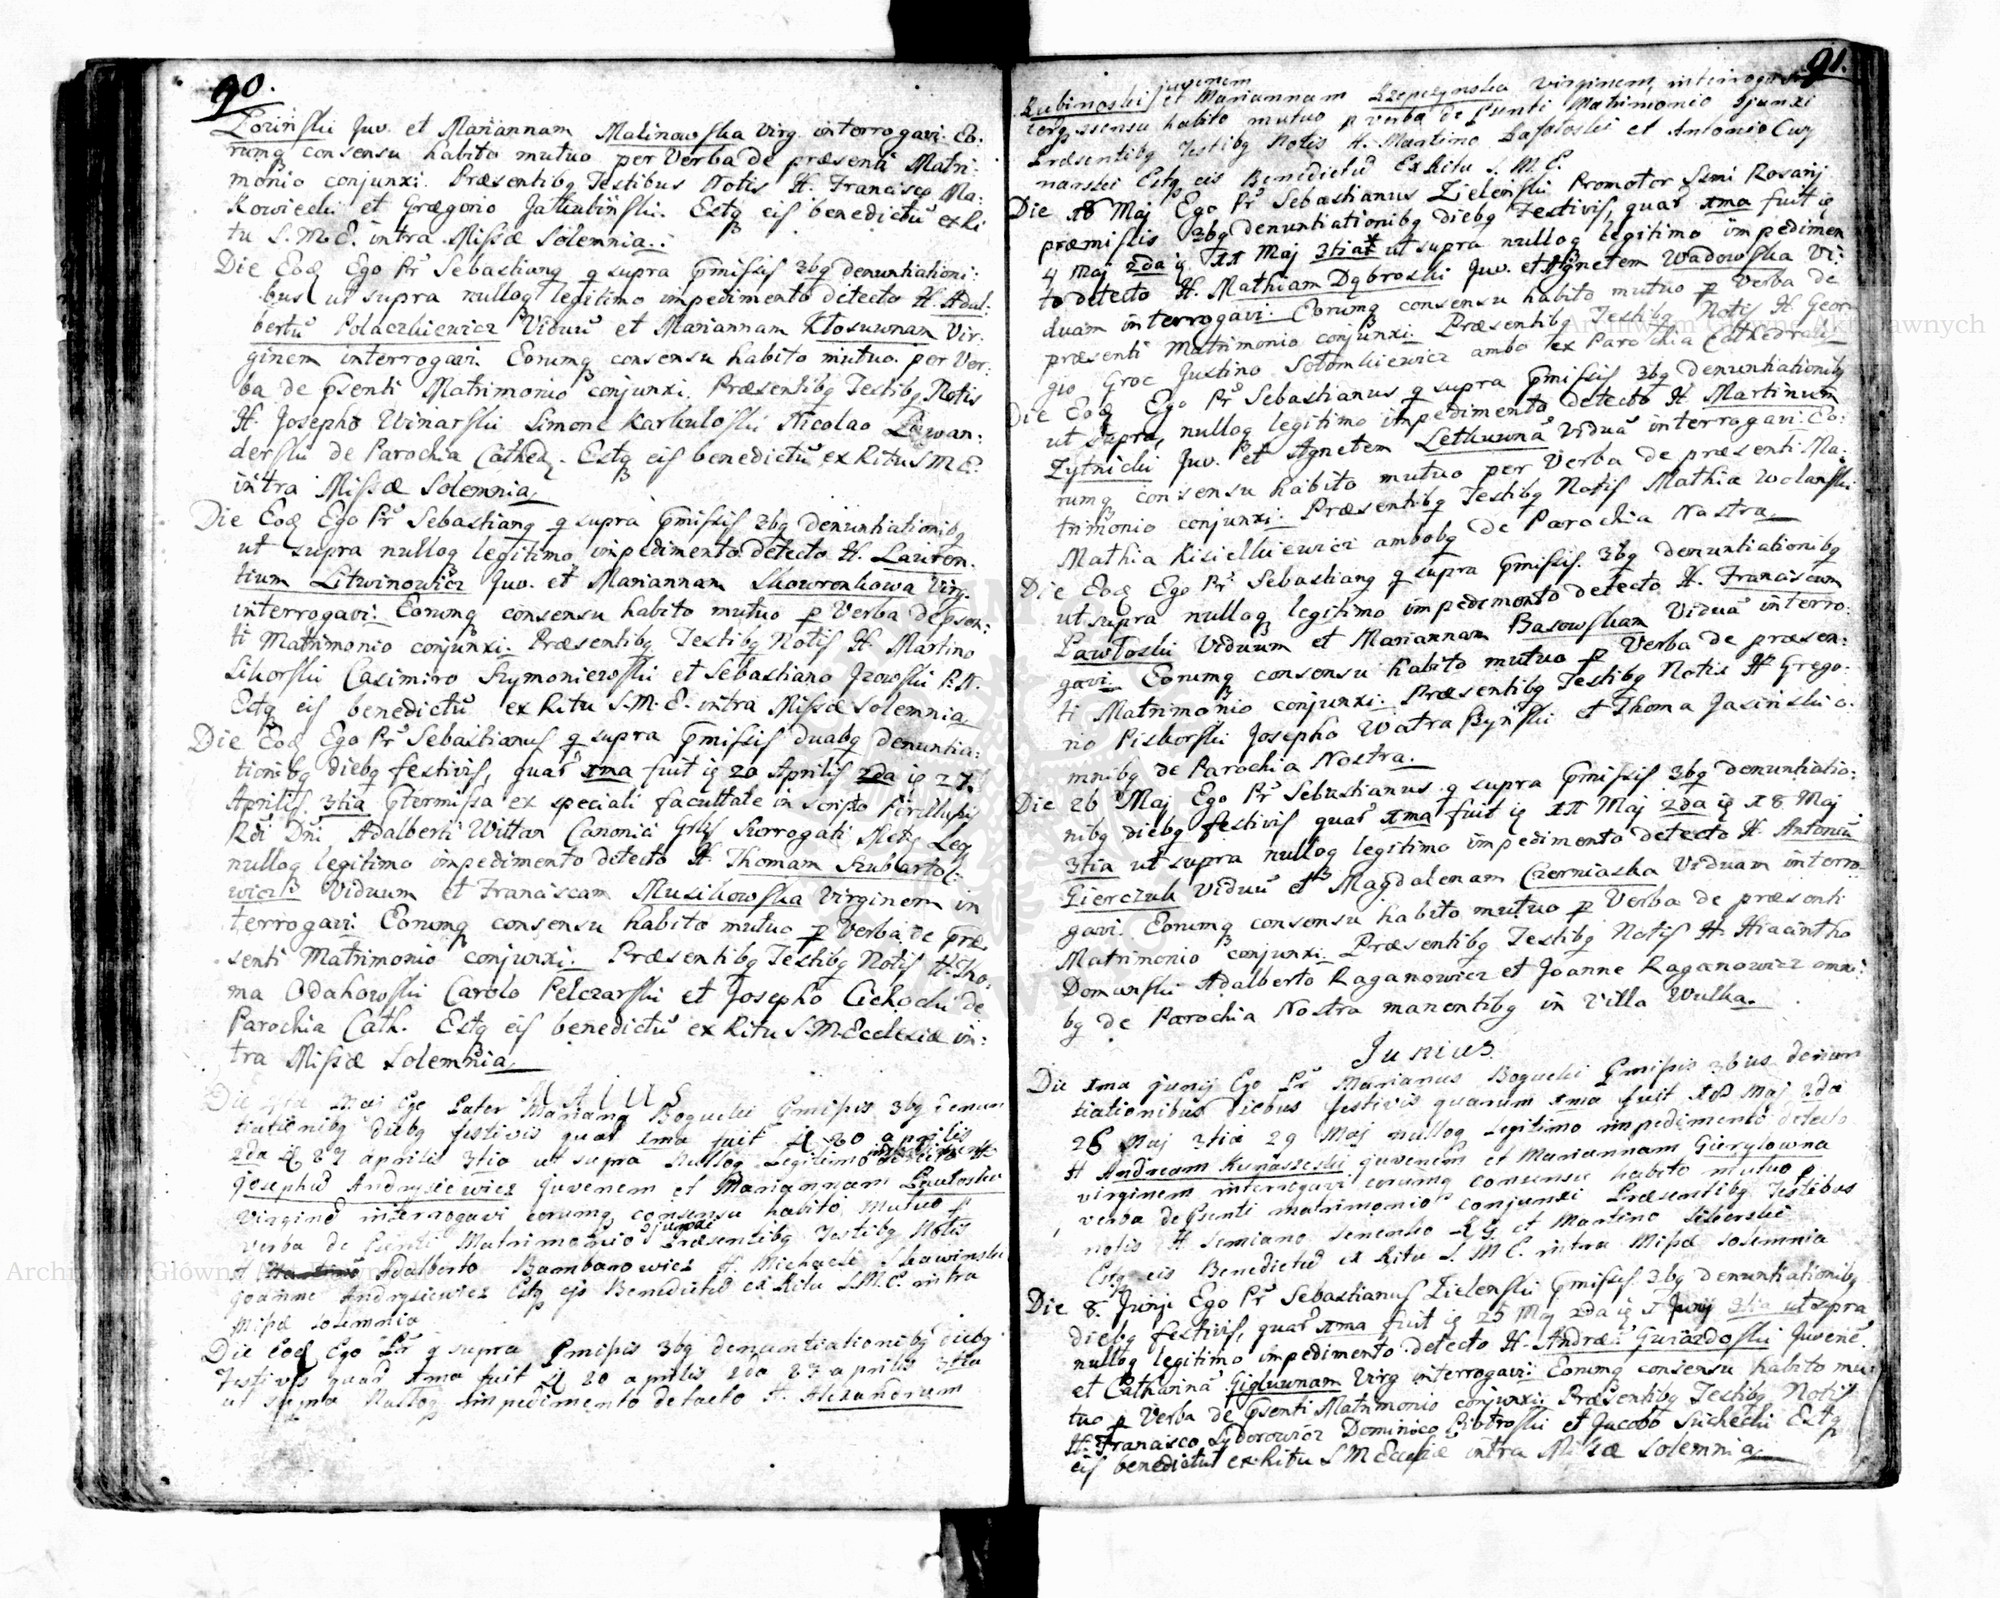 90.
Loziński Juv. et Mariannam Malinowska Virg. interrogavi. Eo:
rumq consensu habito mutuo per Verba de præsenti Matri:
monio conjunxi. Præsentibq Testibus Notis H. Francisco Ma:
kowiecki et Græegorio Jakubiński. Estq eis benedictũ ex Ri
tu S. M. E. intra Missæ Solemnia.
Die Eod Ego Pr Sebastianq q supra Pmissis 3bq denuntiationi:
bus ut supra nulloq legitimo impedimento detecto H. Adal:
bertũ Polaczkiewicz Viduũ et Mariannam Kłosuwnam Vir:
ginem interrogavi. Eorumq consensu habito mutuo per Ver:
ba de Psenti Matrimonio conjunxi. Præsentibq Testibq Notis
H. Josepho Winarski Simone Karkuloski Nicolao Lewan:
derski de Parochia Cathed. Estq eis benedictũ ex Ritu S M E.
intra Missæ Solemnia.
Die Eod Ego Pr Sebastianq q supra Pmissis 3bq Denuntiationibq
ut supra nulloq legitimo impedimento detecto H. Lauren:
tium Litwinowicz Juv. et Mariannam Skowronkowa Virg.
interrogavi. Eorumq consensu habito mutuo p Verba de psen:
ti Matrimonio conjunxi. Præsentibq Testibq Notis H. Martino
Sikorski Casimiro Szymonierski et Sebastiano Jzowski P. N.
Estq eis benedictũ ex Ritu S. M. E. intra Missæ Solemnia
Die Eod Ego Pr Sebastianus q supra Pmissis duabq denuntia:
tionibq diebq festivis, quar 1ma fuit iq 20 Aprilis 2da iq 27
Aprilis 3tia Ptermissa ex speciali facultate in scripto Perillusis
Rdi Dni Adalberti Wittan Canonici Surrogati
nulloq legitimo impedimento detecto H. Thomam Szubarto:
wicz Viduum et Franciscam Musikowska Virginem in
terrogavi. Eorumq consensu habito mutuo p Verba de præ
senti Matrimonio conjunxi. Præsentibq Testibq Notis H. Tho:
ma Odahowski Carolo Pelczarski et Josepho Cichocki de
Parochia Cath. Estq eis benedictũ ex Ritu S. M. Ecclesiæ in:
tra Missæ Solemnia.
MAIUS
Die Maj Ego Pater Marianq Bogucki Pmisis 3bq denun
tiationibq diebq festivis quar 1ma fuit 20 aprilis
2da 27 aprilis 3tia ut supra Nulloq Legitimo impedimento detecto H
Josephũ Andrysiewicz Juvenem et Mariannam Pawłoska
Virginẽ interrogavi eorumq consensu habito mutuo p
verba de Psenti Matrimonio conjunxi Præsentibq Testibq Notis
H Adalberto Bambarowicz H. Michaele Skawinski
Joanne Andrysiewicz Estq eis Benedictũ ex Ritu S.M.E. intra
Misæ solemnia
Die eod Ego Pr q supra Pmisis 3bq denuntiationibq diebq
Festivis quar 1ma fuit 20 aprilis 2da 27 aprilis 3tia
ut supra Nulloq impedimento detecto H. Alexandrum
91.
Rubinoski juvenem et Mariannam Rzepczynska virginem, interrogavi
eorq ssensu habito mutuo p verba de Psenti Matrimonio Sjunxi
Præsentibq Testibq Notis H. Martino et Antonio Cuy
nanski Estq eis Benedictũ Ex Ritu S. M. E.
Die 18 Maj Ego Pr Sebastianus Zielenski Promotor Ssmi Rosarij
præmissis 3bq denuntiationibq diebq Festivis, quar 1ma fuit iq
4 Maj 2da iq 11 Maj 3tia ut supra nulloq legitimo impedimen
to detecto H. Mathiam Dąbroski Juv. et Agnetem Wadowska Vi:
duam interrogavi. Eorumq consensu habito mutuo p Verba de
præsenti Matrimonio conjunxi. Præsentibq Testibq Notis H. Geor
gio Groc Justino Sołomkiewicz ambo ex Parochia Cathedrali
Die Eod Ego Pr Sebastianus q supra Pmissis 3bq Denuntiationibq
ut supra, nulloq legitimo impedimento detecto H Martinum
Zytnicki Juv. et Agnetem Letkuwnã Viduã interrogavi. Eo:
rumq consensu habito mutuo per Verba de præsenti Ma:
trimonio conjunxi. Præsentibq Testibq Notis Mathia Wolanski
Mathia Kisielkiewicz ambobq de Parochia Nostra
Die Eod Ego Pr Sebastianq q supra Pmissis 3bq denuntiationibq
ut supra nulloq legitimo impedimento detecto H. Franciscum
Pawłoski Viduum et Mariannam Basowskam Viduã interro
gavi. Eorumq consensu habito mutuo p Verba de præsen:
ti Matrimonio conjunxi. Præsentibq Testibq Notis H Grego:
rio Piskorski Josepho Watraszynski et Thoma Jasinski o:
mnibq de Parochia Nostra.
Die 26 Maj Ego Pr Sebastianus q supra Pmissis 3bq denuntiatio:
nibq diebq festivis quar 1ma fuit iq 11 Maj 2da iq 18 Maj
3tia ut supra nulloq legitimo impedimento detecto H. Antoniũ
Gierczuk Viduũ et Magdalenam Czerniaska Viduam interro
gavi. Eorumq consensu habito mutuo p Verba de præsenti
Matrimonio conjunxi. Præsentibq Testibq Notis H Hiacintho
Domański Adalberto Raganowicz et Joanne Raganowicz omni:
bq de Parochia Nostra manentibq in Villa Wulka.
Junius
Die 1ma Junij Ego Pr Marianus Bogucki Pmisis 3bus denun
tiationibus diebus festivis quarum 1ma fuit 18 Maj 2da
26 Maj 3tia 29 Maj nulloq Legitimo impedimento detecto
H Andream Kunaszeski juvenem et Mariannam Gierylowna
virginem interrogavi eorumq consensu habito mutuo p
verba de Psenti matrimonio conjunxi Præsentibq Testibus
notis H Semiano Semenko et Martino Siberski
Estq eis Benedictũ ex Ritu S. M E. intra Misæ solemnia
Die 8. Junij Ego Pr Sebastianus Zielenski Pmissis 3bq denuntiationibq
diebq festivis, quar 1ma fuit iq 25 Maj 2da iq 1 Junij 3tia ut spra
nulloq legitimo impedimento detecto H. Andreã Gwiazdoski Juvenẽ
et Catharinã Gigluwnam Virg interrogavi. Eorumq consensu habito mu
tuo p Verba de Psenti Matrimonio conjunxi. Præsentibq Testibq Notis
H. Francisco Sydorowicz Dominico Piotroski et Jacobo Suchecki Estq
eis benedictũ ex Ritu S M Ecclesiæ intra Misæ Solemnia
Archiwum Główne Akt Dawnych
Archiwum Główne Akt Dawnych